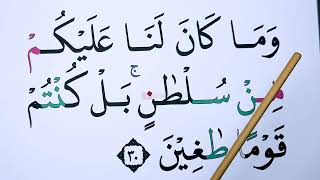 وَمَا كَانَ لَنَا عَلَيْكُمْ
مِنْ سُلْطٰنٍۚ بَلْ كُنْتُمْ
قَوْمًا طٰغِيْنَ ٣٠